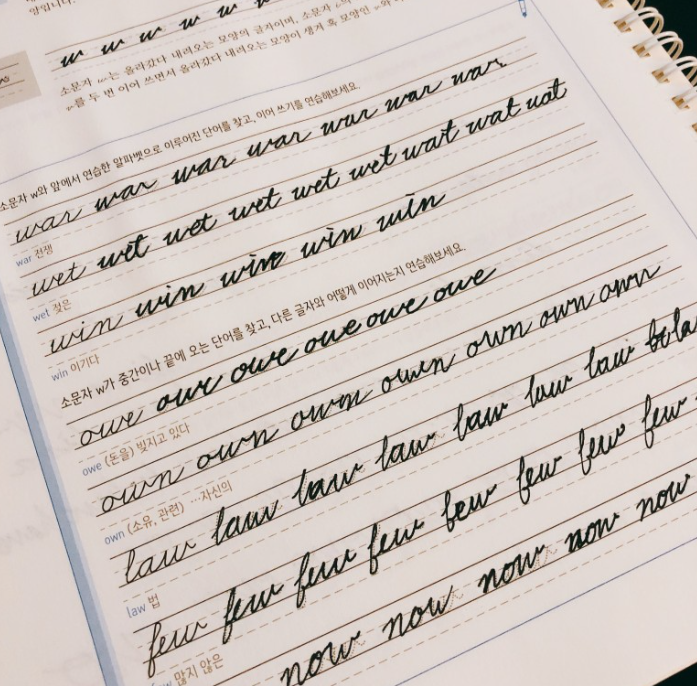 w w w w w w
소문자 w는 올라갔다 내려오는 모양의 글자이며, 소문자
를 두 번 이어 쓰면서 올라갔다 내려오는 모양이 생겨 혹 모양인
소문자 w와 앞에서 연습한 알파벳으로 이루어진 단어를 찾고, 이어 쓰기를 연습해보세요.
war war war war war war war
war 전쟁
wet wet wet wet wet wat wat wat
wet 젖은
win win win win win
win 이기다
소문자 w가 중간이나 끝에 오는 단어를 찾고, 다른 글자와 어떻게 이어지는지 연습해보세요.
owe owe owe owe owe owe
owe (돈을) 빚지고 있다
own own own own own own own
own (소유, 관련) …자신의
law law law law law law law
law 법
few few few few few few few few
많지 않은
now now now now now